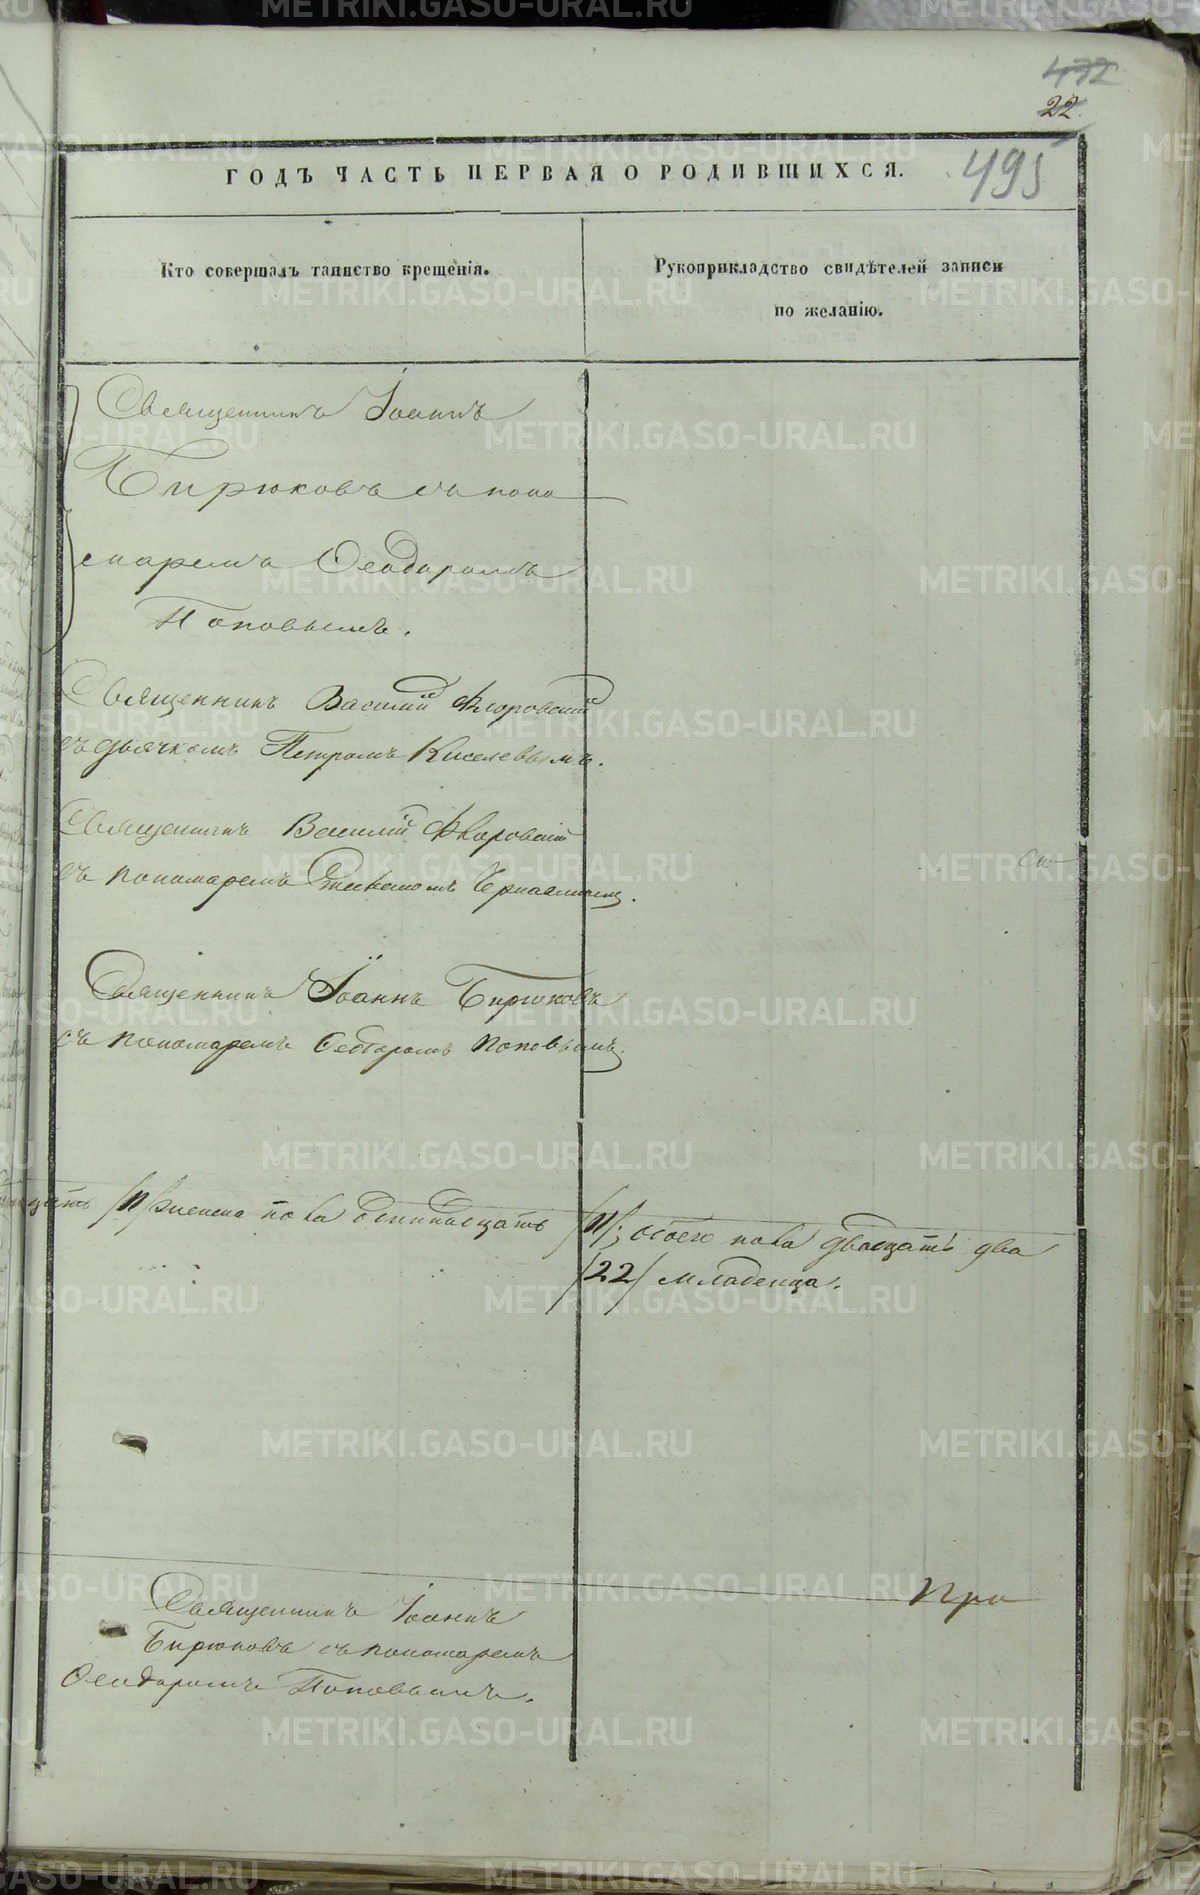 472
22.
495
ГОДЪ ЧАСТЬ ПЕРВАЯ О РОДИВШИХСЯ.
Кто совершалъ таинство крещенія.
Рукоприкладство свидѣтелей записи
по желанію.
Священникъ Іоаннъ
Бирюковъ съ поно
маремъ Ѳеодоромъ
Поповымъ.
Священникъ Василій Флоровскій
съ дьячкомъ Петромъ Киселевымъ.
Священникъ Василій Флоровскій
съ пономаремъ
Священникъ Іоаннъ Бирюковъ
съ пономаремъ Ѳеодоромъ Поповымъ.
/11/ женска пола одиннадцать /11/; обоего пола двадцать два
/22/ младенца.
Священникъ Іоаннъ
Бирюковъ съ пономаремъ
Ѳеодоромъ Поповымъ.
При
METRIKI.GASO-URAL.RU